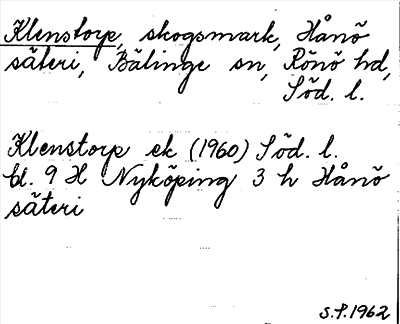 Klenstorp, skogsmark, Hånö
säteri, Bälinge sn, Rönö hd,
Söd. l.
Klenstorp ek (1960) Söd. l.
bl. 9 H Nyköping 3 h Hånö
säteri
S.P. 1962